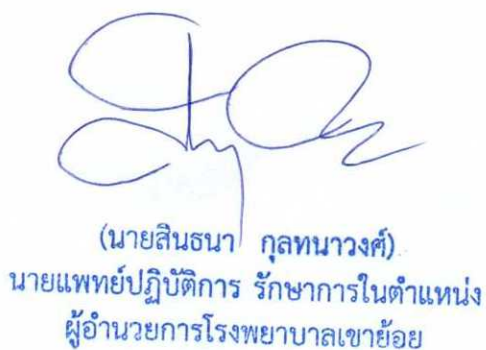 (นายสินธนา กุลทนาวงศ์)
นายแพทย์ปฏิบัติการ รักษาการในตำแหน่ง
ผู้อำนวยการโรงพยาบาลเขาย้อย